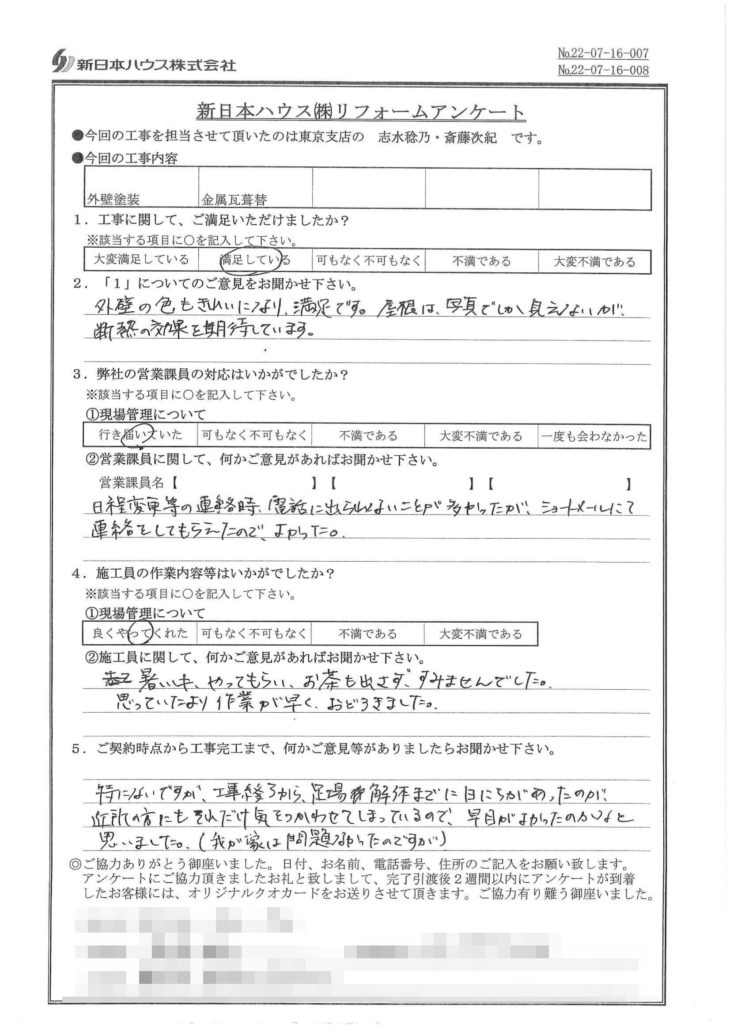 新日本ハウス株式会社
No.22-07-16-007
No.22-07-16-008
新日本ハウス㈱リフォームアンケート
●今回の工事を担当させて頂いたのは東京支店の 志水稔乃・斎藤次紀 です。
●今回の工事内容
外壁塗装 金属瓦葺替
1．工事に関して、ご満足いただけましたか？
※該当する項目に○を記入して下さい。
大変満足している 満足している 可もなく不可もなく 不満である 大変不満である
2．「1」についてのご意見をお聞かせ下さい。
外壁の色もきれいになり、満足です。屋根は、写真でしか見えないが、
断熱の効果を期待しています。
3．弊社の営業課員の対応はいかがでしたか？
※該当する項目に○を記入して下さい。
①現場管理について
行き届いていた 可もなく不可もなく 不満である 大変不満である 一度も会わなかった
②営業課員に関して、何かご意見があればお聞かせ下さい。
営業課員名【 】【 】【 】
日程変更等の連絡時、電話に出られないことが多かったが、ショートメールにて
連絡をしてもらえたので、よかった。
4．施工員の作業内容等はいかがでしたか？
※該当する項目に○を記入して下さい。
①現場管理について
良くやってくれた 可もなく不可もなく 不満である 大変不満である
②施工員に関して、何かご意見があればお聞かせ下さい。
暑い中、やってもらい、お茶も出さず、すみませんでした。
思っていたより作業が早く、おどろきました。
5．ご契約時点から工事完工まで、何かご意見等がありましたらお聞かせ下さい。
特にないですが、工事終了から、足場解体までに日にちがあったのが、
近所の方にもそれだけ気をつかわせてしまっているので、早目がよかったのかなと
思いました。（我が家は問題なかったのですが）
◎ご協力ありがとう御座いました。日付、お名前、電話番号、住所のご記入をお願い致します。
アンケートにご協力頂きましたお礼と致しまして、完了引渡後２週間以内にアンケートが到着
したお客様には、オリジナルクオカードをお送りさせて頂きます。ご協力有り難う御座いました。